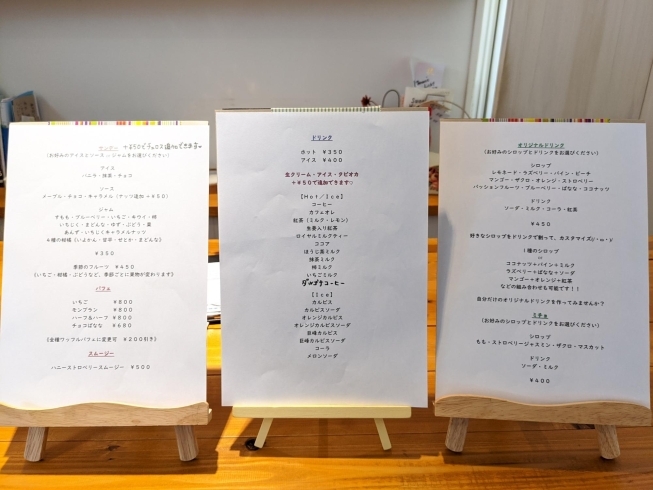 サンデー +¥50でチョコ追加できます
(お好みのアイスとソース or ジャムをお選びください)
アイス
バニラ・抹茶・チョコ
ソース
メープル・チョコ・キャラメル (ナッツ追加 +¥50)
ジャム
すもも・ブルーベリー・いちご・キウイ・桃
いちじく・まどんな・ゆず・ぶどう・栗
あんず・いちじくキャラメルナッツ
4種の柑橘 (いよかん・甘平・せとか・まどんな)
¥350
季節のフルーツ ¥450
(いちご・柑橘・ぶどうなど、季節ごとに果物が変わります)
パフェ
いちご ¥800
モンブラン ¥800
ハーフ&ハーフ ¥800
チョコばなな ¥680
(全種ワッフルパフェに変更可 ¥200引き)
スムージー
ハニーストロベリースムージー ¥500
ドリンク
ホット ¥350
アイス ¥400
生クリーム・アイス・タピオカ
+¥50で追加できます♡
[Hot/Ice]
コーヒー
カフェオレ
紅茶 (ミルク・レモン)
生姜入り紅茶
ロイヤルミルクティー
ココア
ほうじ茶ミルク
抹茶ミルク
桃ミルク
いちごミルク
ダルゴナコーヒー
[Ice]
カルピス
カルピスソーダ
オレンジカルピス
オレンジカルピスソーダ
巨峰カルピス
巨峰カルピスソーダ
コーラ
メロンソーダ
オリジナルドリンク
(お好みのシロップとドリンクをお選びください)
シロップ
レモネード・ラズベリー・パイン・ピーチ
マンゴー・ザクロ・オレンジ・ストロベリー
パッションフルーツ・ブルーベリー・ばなな・ココナッツ
ドリンク
ソーダ・ミルク・コーラ・紅茶
¥450
好きなシロップをドリンクで割って、カスタマイズ(・ω・)ノ
1種のシロップ
or
ココナッツ+パイン+ミルク
ラズベリー+ばなな+ソーダ
マンゴー+オレンジ+紅茶
などの組み合わせも可能です!!
自分だけのオリジナルドリンクを作ってみませんか?
ミチョ
(お好みのシロップとドリンクをお選びください)
シロップ
もも・ストロベリージャスミン・ザクロ・マスカット
ドリンク
ソーダ・ミルク
¥400